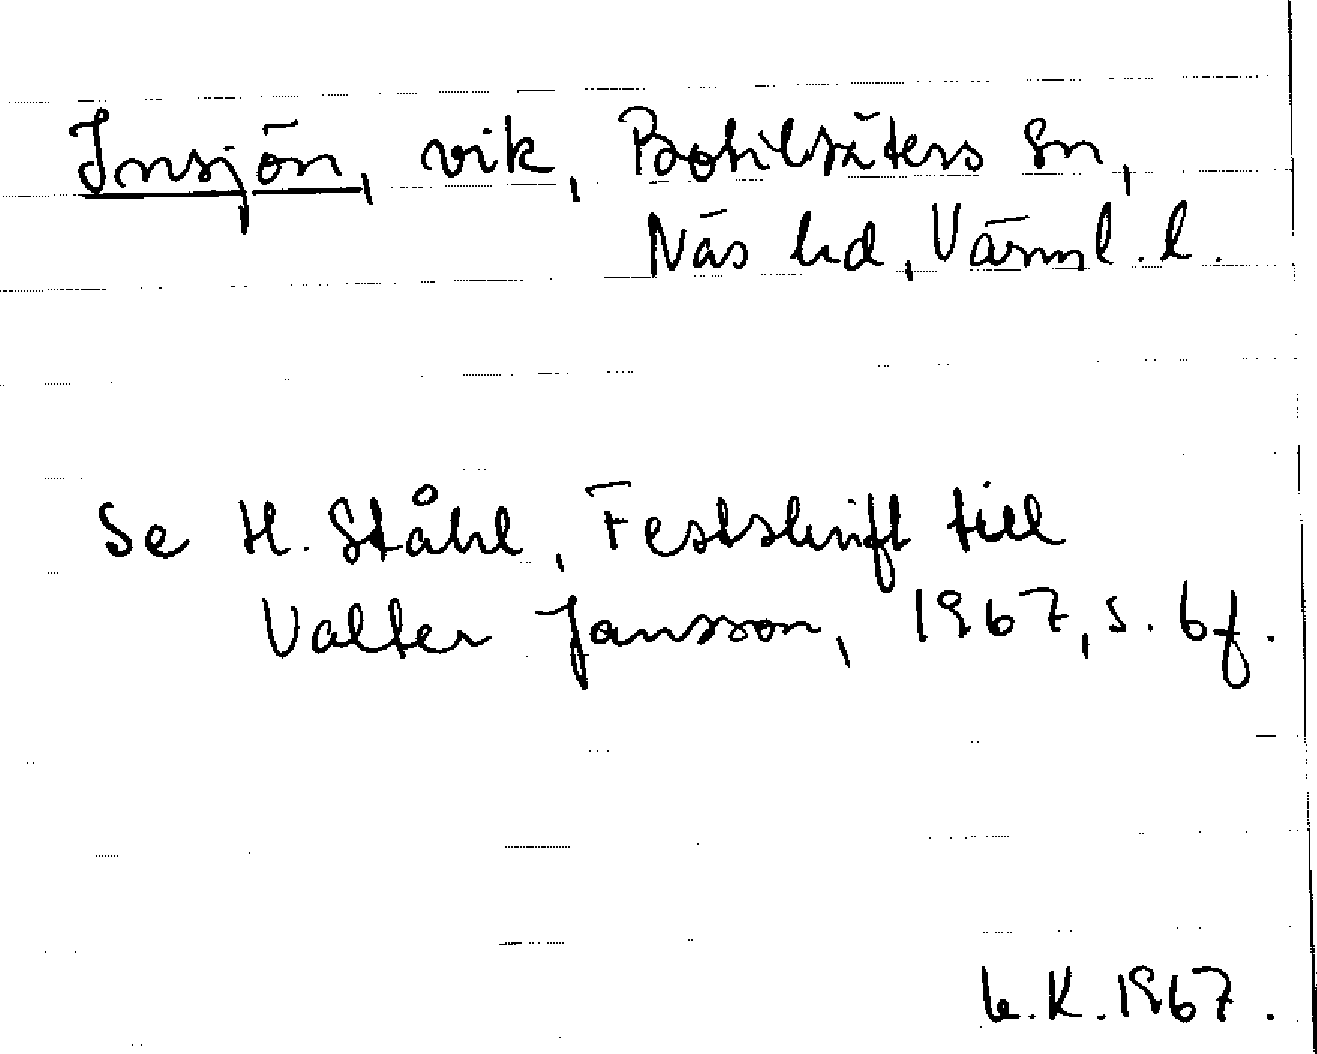 Insjön, vik, Botilsäters Sn,
Näs hd, Värml. l.
Se H. Ståhl, Festskrift till
Valter Jansson, 1967, s. 6f.
K. 1967.